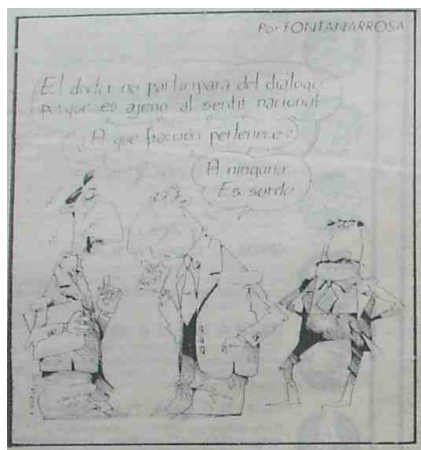 Por FONTANARROSA
El doctor no participará del diálogo
porque es ajeno al sentir nacional
¿A que fracción pertenece?
A ninguna.
Es sordo